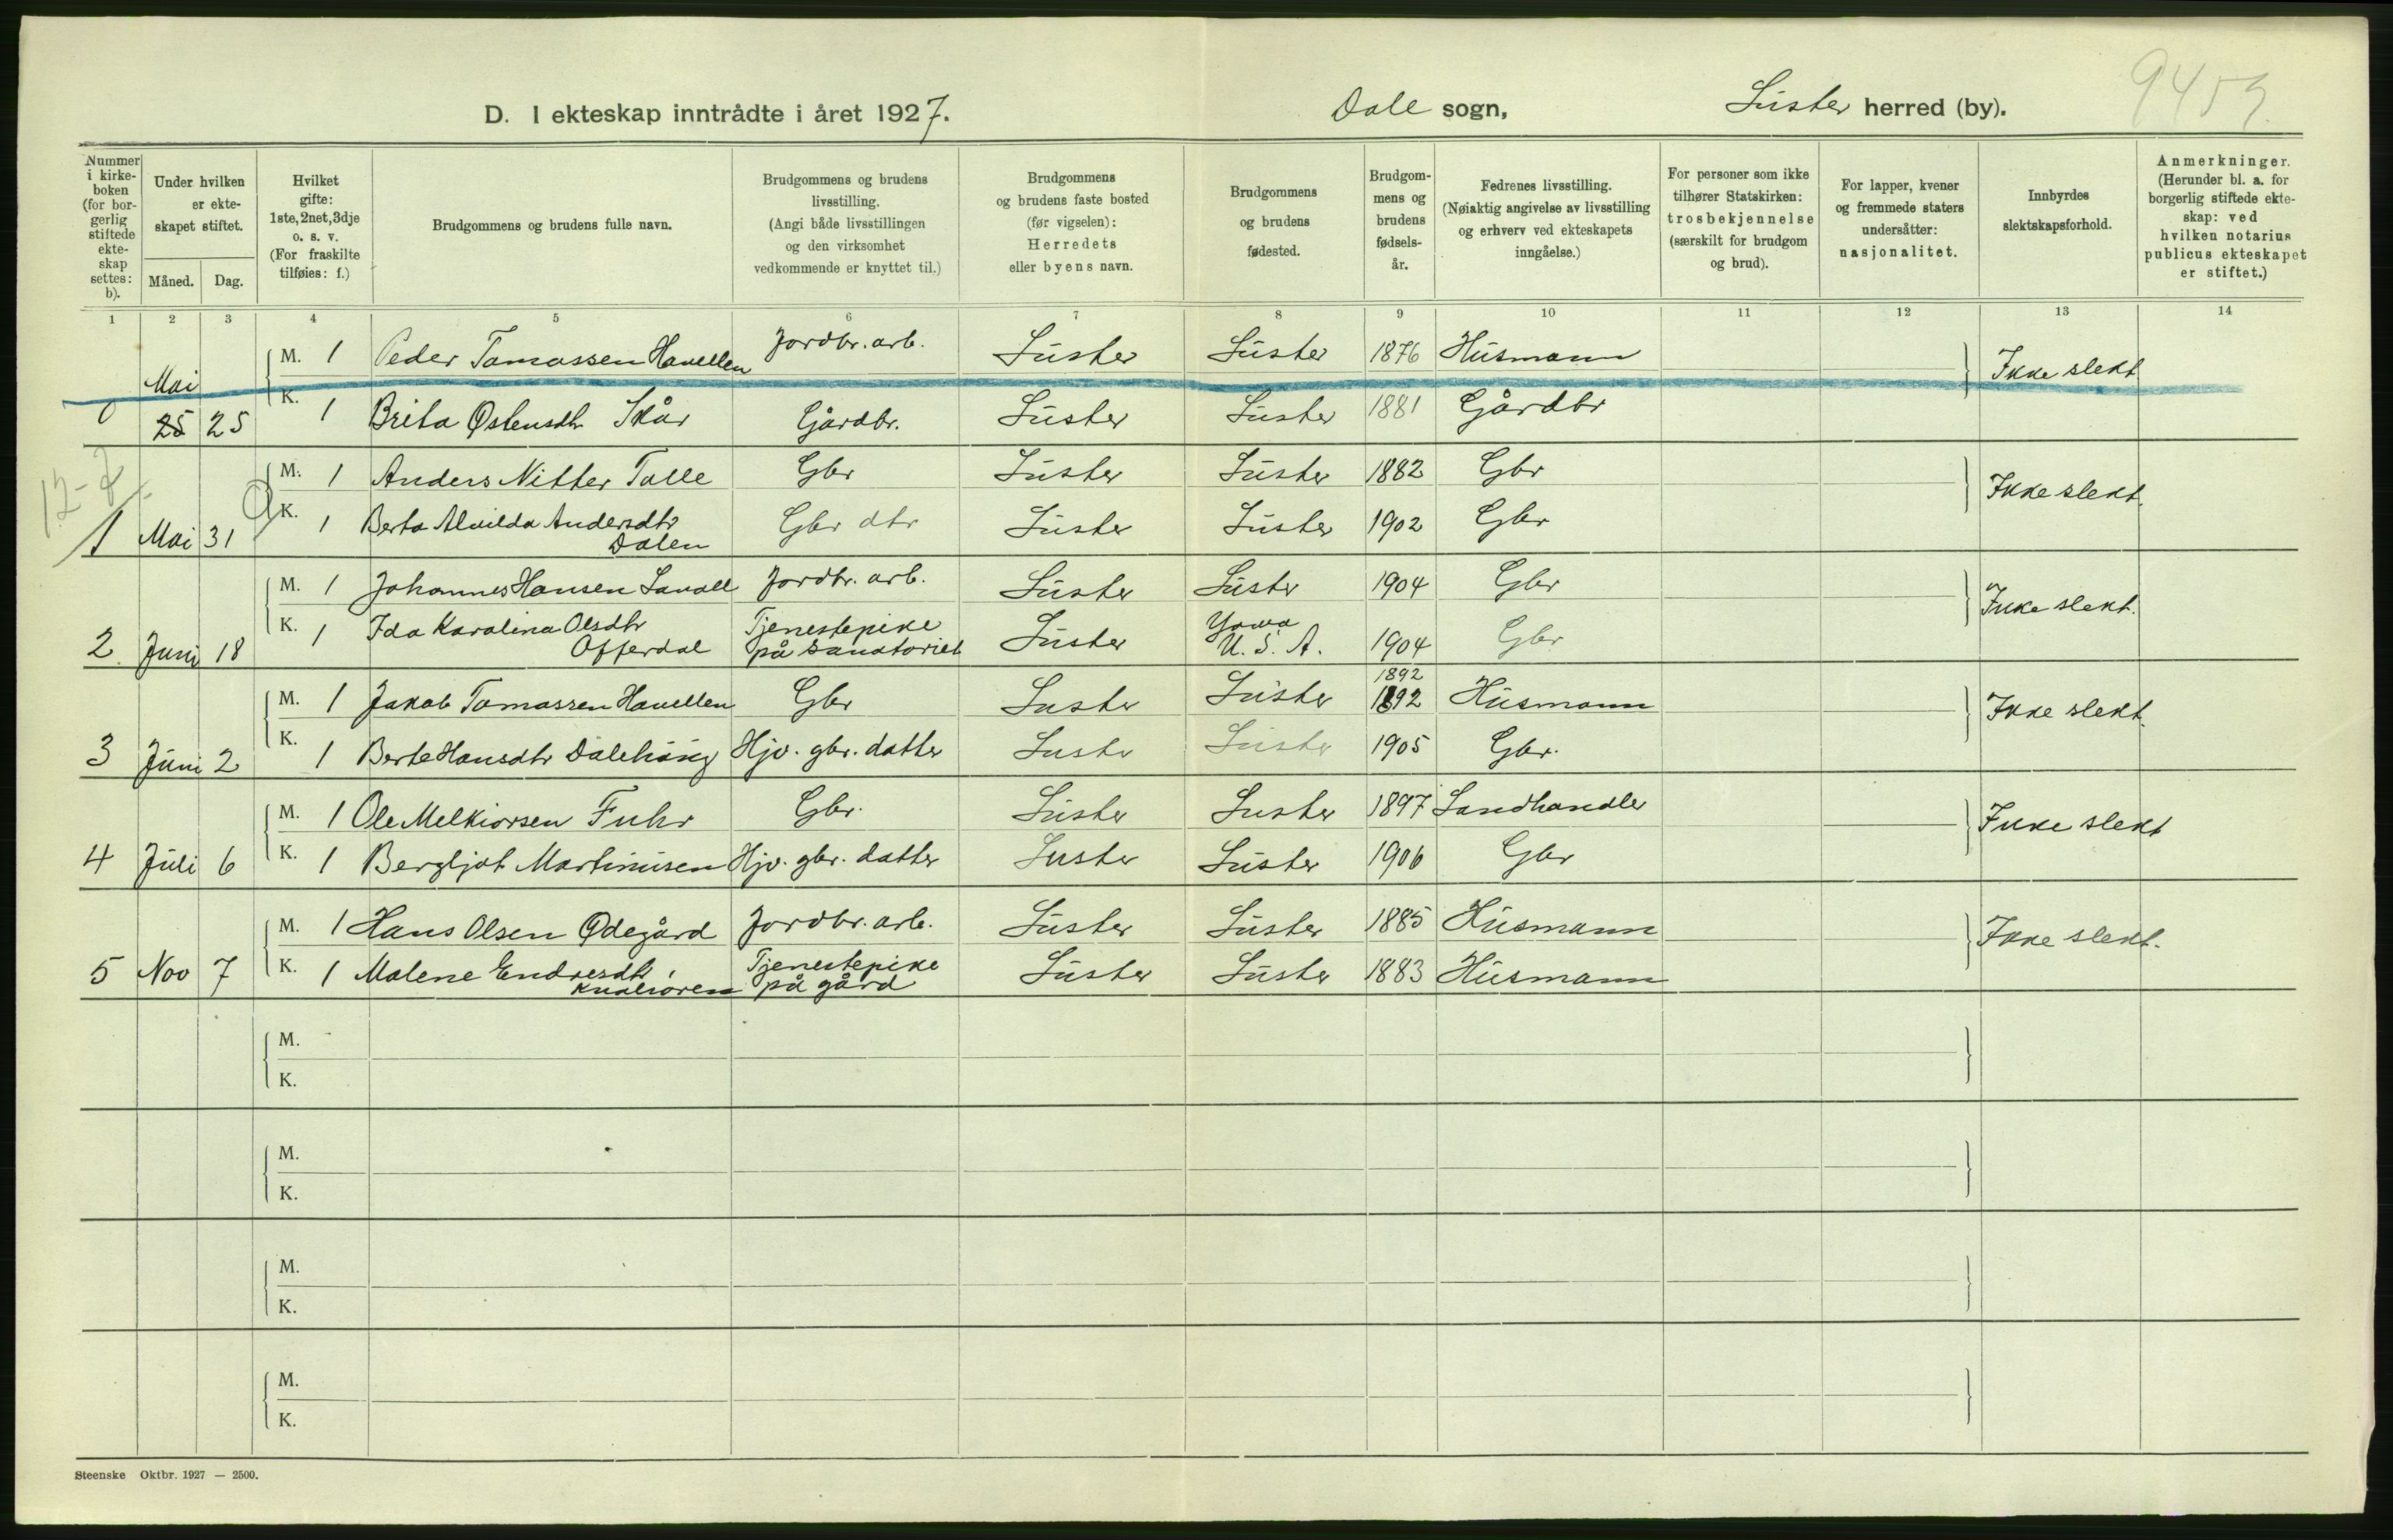 9459
D. I ekteskap inntrådte i året 1927. Dale sogn, Lúster herred (by).
Nummer i kirke-boken (for bor-gerlig stiftede ekte-skap settes: b).
Under hvilken er ekte-skapet stiftet.
Måned. Dag.
Hvilket gifte: 1ste, 2net, 3dje o. s. v. (For fraskilte tilføies: f.)
Brudgommens og brudens fulle navn.
Brudgommens og brudens livsstilling. (Angi både livsstillingen og den virksomhet vedkommende er knyttet til.)
Brudgommens og brudens faste bosted (før vigselen): Herredets eller byens navn.
Brudgommens og brudens fødested.
Brudgom-mens og brudens fødsels-år.
Fedrenes livsstilling. (Nøiaktig angivelse av livsstilling og erhverv ved ekteskapets inngåelse.)
For personer som ikke tilhører Statskirken: trosbekjennelse (særskilt for brudgom og brud).
For lapper, kvener og fremmede staters undersåtter: nasjonalitet.
Innbyrdes slektskapsforhold.
Anmerkninger. (Herunder bl. a. for borgerlig stiftede ekte-skap: ved hvilken notarius publicus ekteskapet er stiftet.)
1 2 3 4 5 6 7 8 9 10 11 12 13 14
M. 1 Peder Tamassen Havellen Jordbr. arb. Lúster Lúster 1876 Húsmann Ikke slekt
0 Mai 25 25 K. 1 Brita Østensdtr Skår Gårdbr. Lúster Lúster 1881 Gårdbr
M. 1 Anders Nitter Talle Gbr Lúster Lúster 1882 Gbr Ikke slekt.
1 Mai 31 K. 1 Berta Alvilda Andersdtr Dalen Gbr dtr Lúster Lúster 1902 Gbr
M. 1 Johannes Hansen Lavoll Jordbr. arb. Lúster Lúster 1904 Gbr Ikke slekt.
2 Juni 18 K. 1 Ida Karolina Olsdtr Offerdal Tjenestepike på sanatoriet Lúster Yowa U. S. A. 1904 Gbr
M. 1 Jakob Tamassen Havellen Gbr Luster Lúster 1892 1892 Húsmann Ikke slekt
3 Júni 2 K. 1 Berte Hansdtr Dalehaúg Hjv. gbr. datter Luster Lúster 1905 Gbr.
M. 1 Ole Melkiorsen Fuhr Gbr. Lúster Luster 1897 Landhandler Ikke slekt
4 Júli 6 K. 1 Bergljot Martinúsen Hjv. gbr. datter Luster Lúster 1906 Gbr
M. 1 Hans Olsen Ødegård Jordbr. arb. Lúster Lúster 1885 Húsmann Ikke slekt.
5 Nov 7 K. 1 Malene Endresdtr Kvalsøren Tjenestepike på gård Lúster Lúster 1883 Húsmann
M.
K.
M.
K.
M.
K.
M.
K.
Steenske Oktbr. 1927 — 2500.